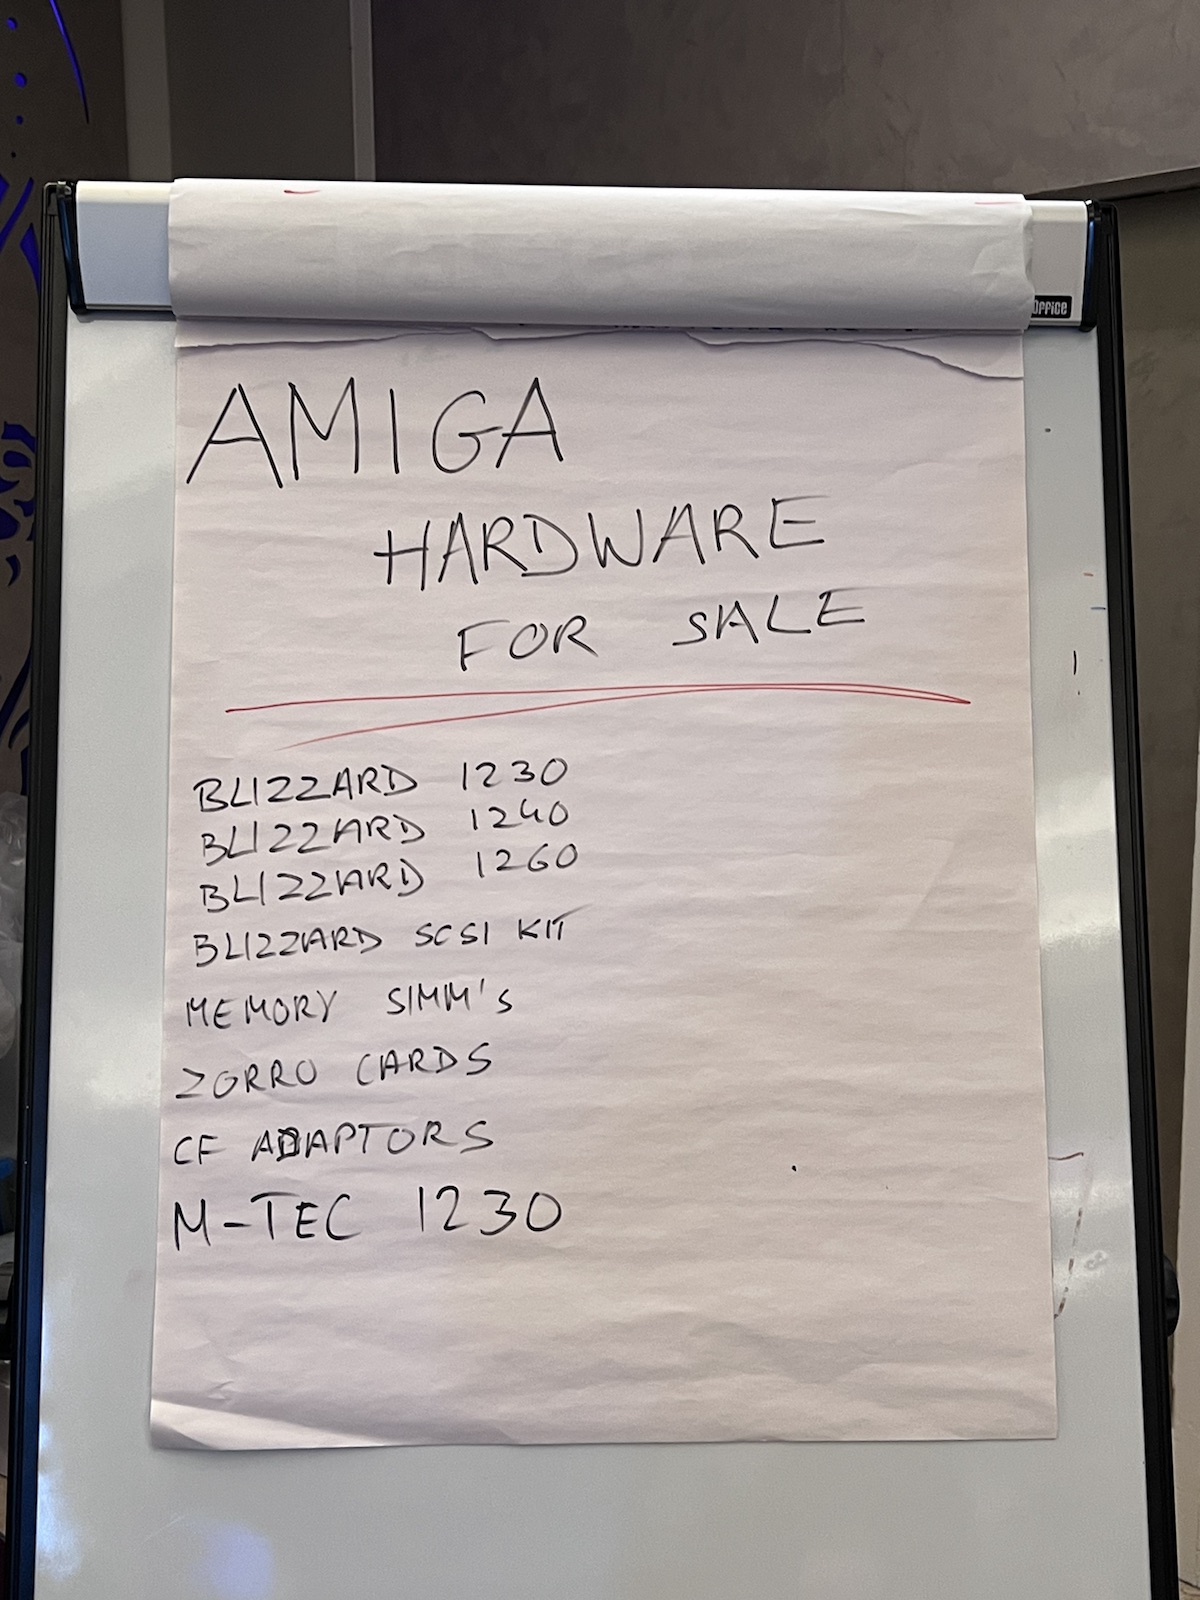 Office
AMIGA
HARDWARE
FOR SALE
BLIZZARD 1230
BLIZZARD 1240
BLIZZARD 1260
BLIZZARD SCSI KIT
MEMORY SIMM'S
ZORRO CARDS
CF ADAPTORS
M-TEC 1230